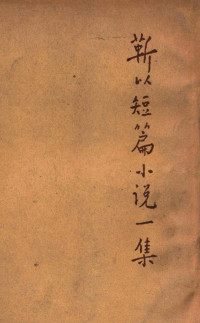 靳以短篇小说一集